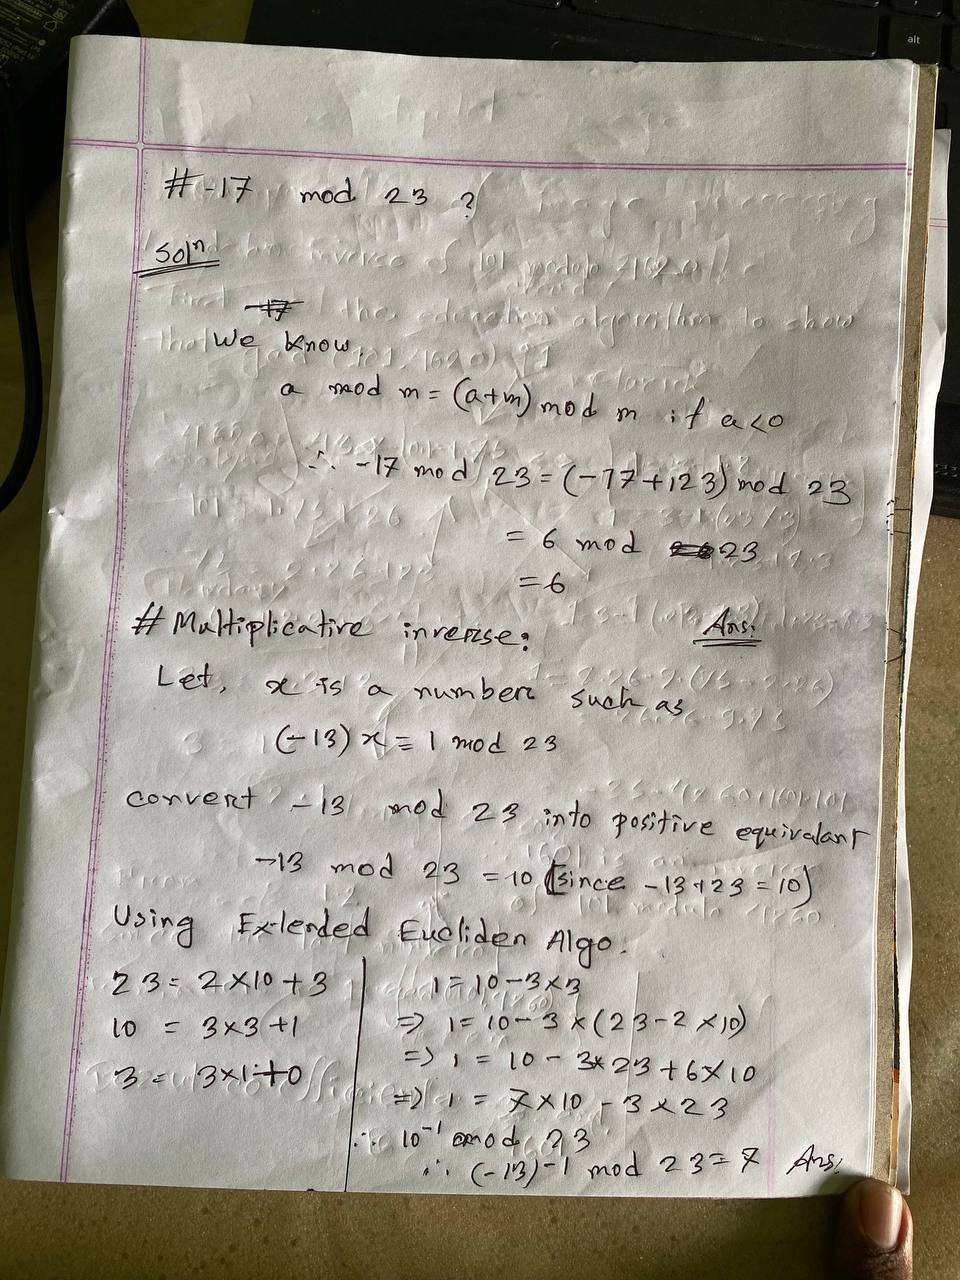 alt
# -17 mod 23 ?
Soln
-17
We know,
a mod m = (a+m) mod m if a<0
∴ -17 mod 23 = (-17+123) mod 23
= 6 mod 23
= 6
Ans:
# Multiplicative inverse:
Let, x is a number such as
(-13) x = 1 mod 23
convert -13 mod 23 into positive equivalant
-13 mod 23 = 10 (since -13+23 = 10)
Using Extended Eucliden Algo.
23 = 2×10 + 3
10 = 3×3 +1
3 = 3×1+0
1 = 10-3×3
=> 1 = 10-3×(23-2×10)
=> 1 = 10 - 3×23 + 6×10
=> 1 = 7×10 - 3×23
∴ 10⁻¹ mod 23
∴ (-13)-1 mod 23 = 7 Ans: